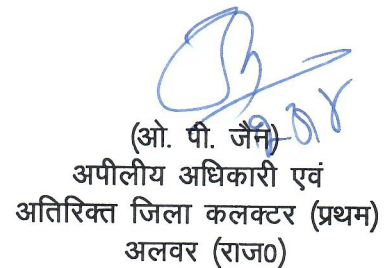 (ओ. पी. जैन)
अपीलीय अधिकारी एवं
अतिरिक्त जिला कलक्टर (प्रथम)
अलवर (राज0)